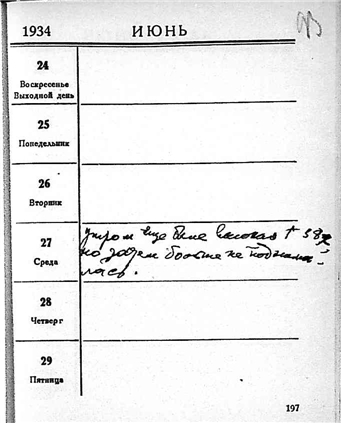 1934 ИЮНЬ
24
Воскресенье
Выходной день
25
Понедельник
26
Вторник
27
Среда
утром еще была высокая t 38,
но затем больше не поднима-
лась.
28
Четверг
29
Пятница
197